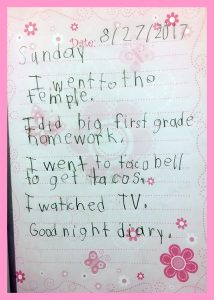 Date: 8/27/2017
Sunday
I went to the
temple.
I did big first grade
homework.
I went to taco bell
to get tacos.
I watched TV.
Good night diary.